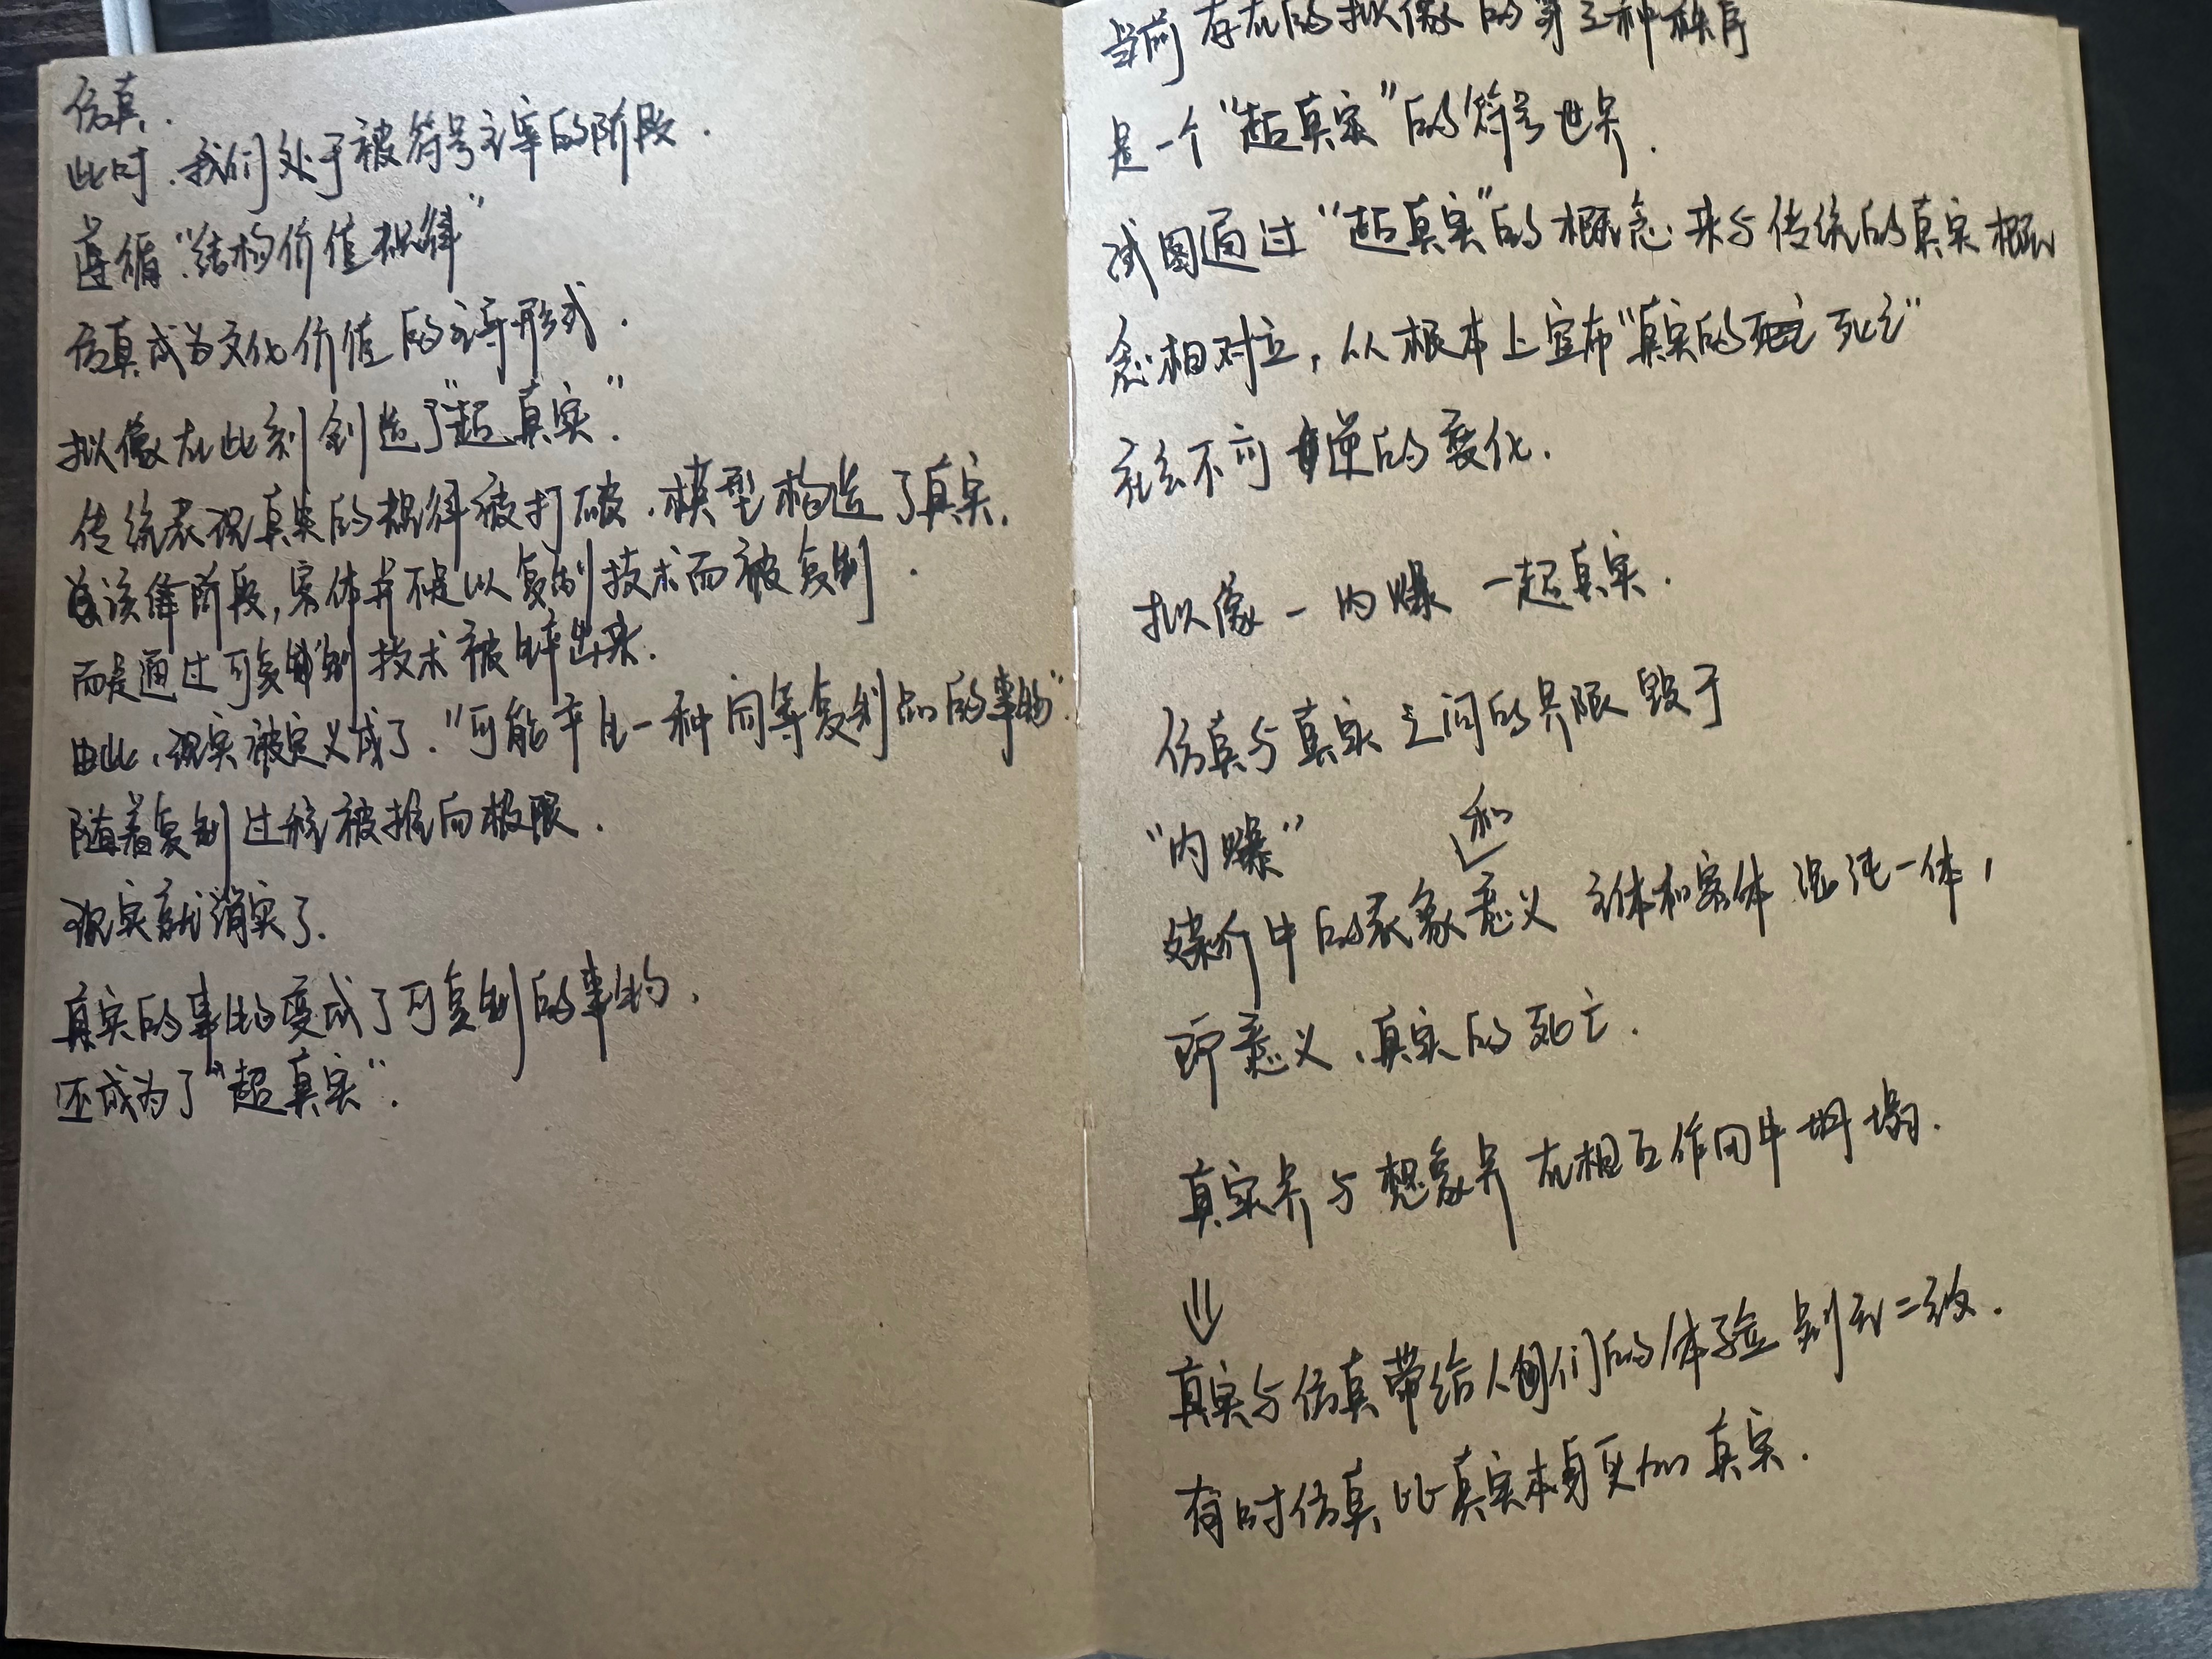 仿真.
此时.我们处于被符号主宰的阶段.
遵循“结构价值规律”
仿真成为文化价值的主导形式.
拟像在此刻创造了“超真实”.
传统表现真实的规律被打破.模型构造了真实.
该阶段,客体并不是以复制技术而被复制.
而是通过可复制技术被生产出来.
由此,现实被定义成了.“可能产生一种同等复制品的事物”.
随着复制过程被推向极限.
现实就消实了.
真实的事物变成了可复制的事物.
还成为了“超真实”.
当前存在的拟像的第三种秩序
是一个“超真实”的符号世界.
试图通过“超真实”的概念.来与传统的真实概
念相对立,从根本上宣布“真实的死亡”
社会不可逆的变化.
拟像-内爆-超真实.
仿真与真实之间的界限毁于
“内爆”
媒介中的表象和意义 主体和客体混沌一体,
即意义.真实的死亡.
真实界与想象界在相互作用中坍塌.
⇓
真实与仿真带给人们的体验别无二致.
有时仿真比真实本身更加真实.